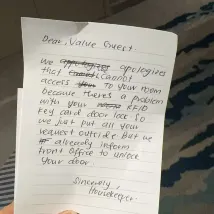 Dear, Value Guest.
We apologizes
that cannot
access to your room
because there's a problem
with your RFID
key card door lock so
we just put all your
request outside but we
already inform
front office to unlock
your door.
Sincerely,
Housekeeper.